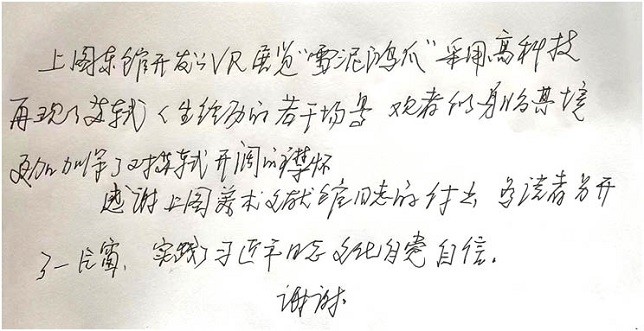 上图东馆开发的VR展览“雪泥鸿爪”采用高科技
再现了苏轼人生经历的若干场景 观者似身临其境
更加加深了对苏轼开阔的襟怀
感谢上图美术文献馆同志的付出 为读者另开
了一片窗，实践了习近平同志文化自觉自信。
谢谢